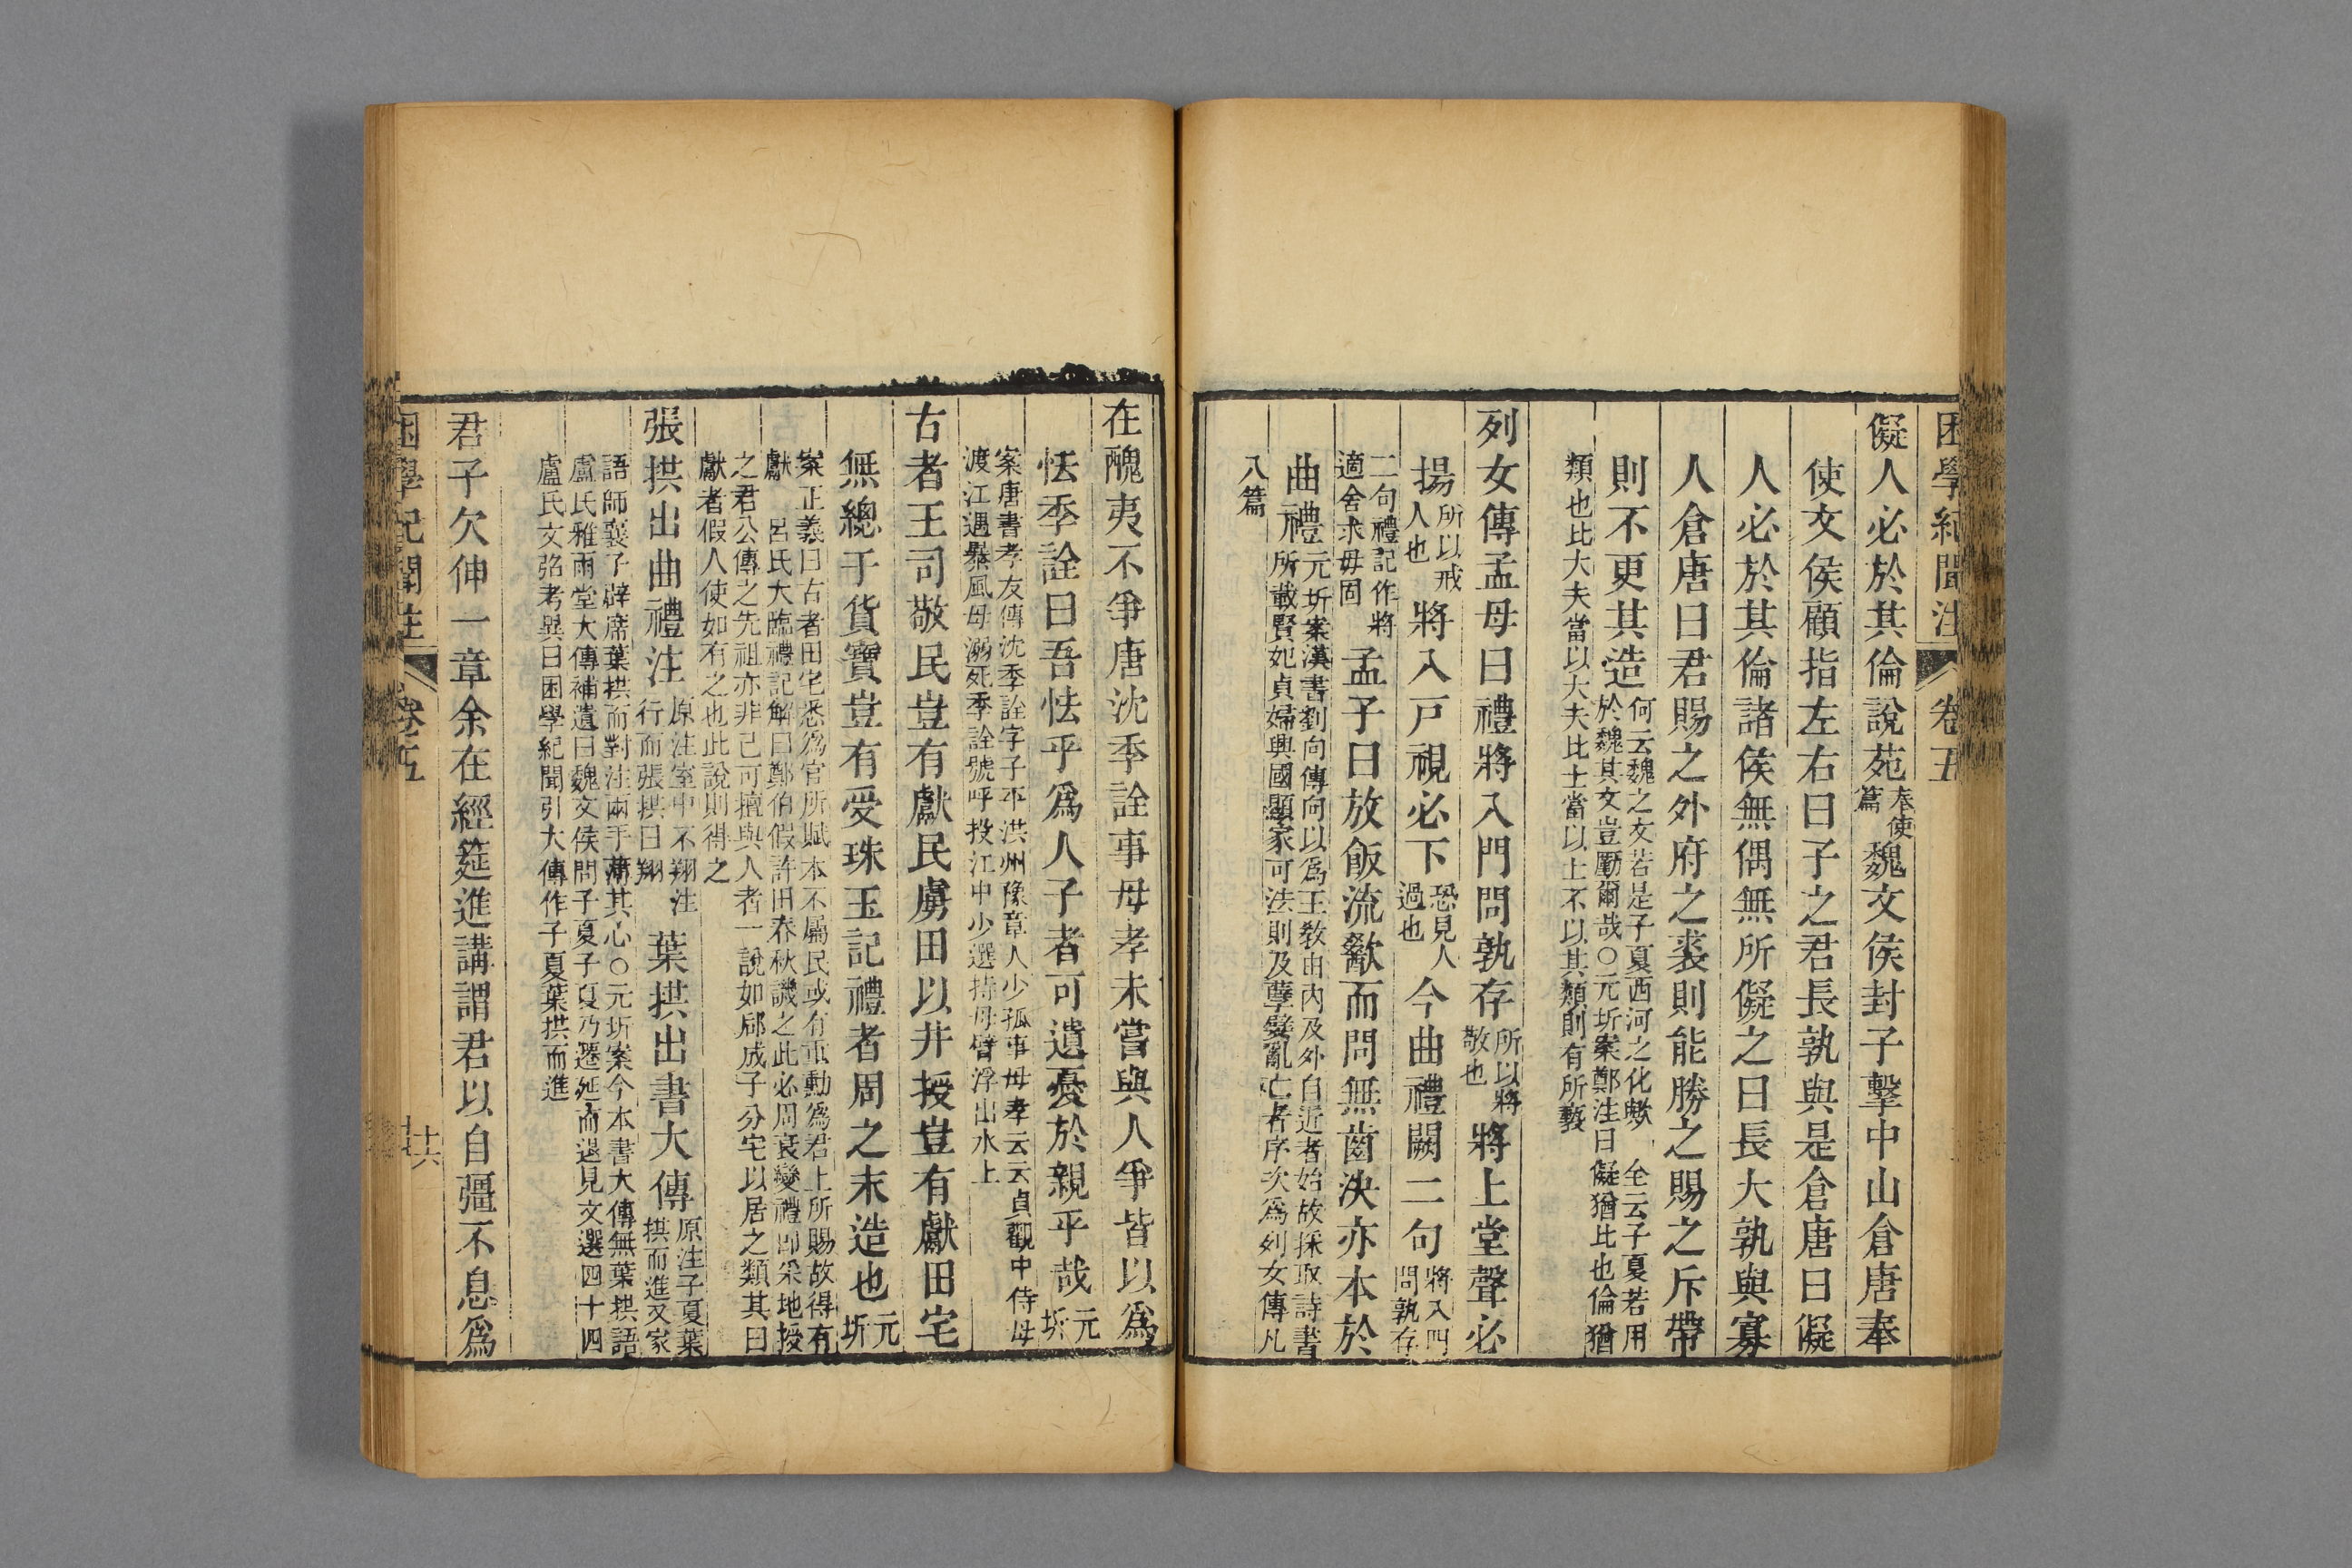 困學紀聞注 卷五
儗人必於其倫說苑奉使篇魏文侯封子擊中山倉唐奉
使文侯顧指左右曰子之君長孰與是倉唐曰儗
人必於其倫諸侯無偶無所儗之曰長大孰與寡
人倉唐曰君賜之外府之裘則能勝之賜之斥帶
則不更其造何云魏之文若是子夏西河之化歟 全云子夏若用
於魏其文豈勵爾哉○元圻案鄭注曰儗猶比也倫猶
類也比大夫當以大夫比士當以士不以其類則有所褻
列女傳孟母曰禮將入門問孰存所以將敬也將上堂聲必
揚所以戒人也將入戶視必下恐見人過也今曲禮闕二句將入門問孰存
二句禮記作將適舍求毋固孟子曰放飯流歠而問無齒決亦本於
曲禮元圻案漢書劉向傳向以為王教由內及外自近者始故採取詩書
所載賢妃貞婦興國顯家可法則及孽嬖亂亡者序次為列女傳凡
八篇
在醜夷不爭唐沈季詮事母孝未嘗與人爭皆以為
怯季詮曰吾怯乎為人子者可遺憂於親乎哉元圻
案唐書孝友傳沈季詮字子平洪州豫章人少孤事母孝云云貞觀中侍母
渡江遇暴風母溺死季詮號呼投江中少選持母臂浮出水上
古者王司敬民豈有獻民虜田以井授豈有獻田宅
無總于貨寶豈有受珠玉記禮者周之末造也元圻
案正義曰古者田宅悉為官所賦本不屬民或有重勳為君上所賜故得有
獻 呂氏大臨禮記解曰鄭伯假許田春秋譏之此必周衰變禮即采地授
之君公傳之先祖亦非己可擅與人者一說如郈成子分宅以居之類其曰
獻者假人使如有之也此說則得之
張拱出曲禮注原注室中不翔注行而張拱曰翔葉拱出書大傳原注子夏葉拱而進又家
語師襄子辟席葉拱而對注兩手薄其心○元圻案今本書大傳無葉拱語
盧氏雅雨堂大傳補遺曰魏文侯問子夏子夏乃遷延而退見文選四十四
盧氏文弨考異曰困學紀聞引大傳作子夏葉拱而進
君子欠伸一章余在經筵進講謂君以自彊不息為
困學紀聞注 卷五 十六